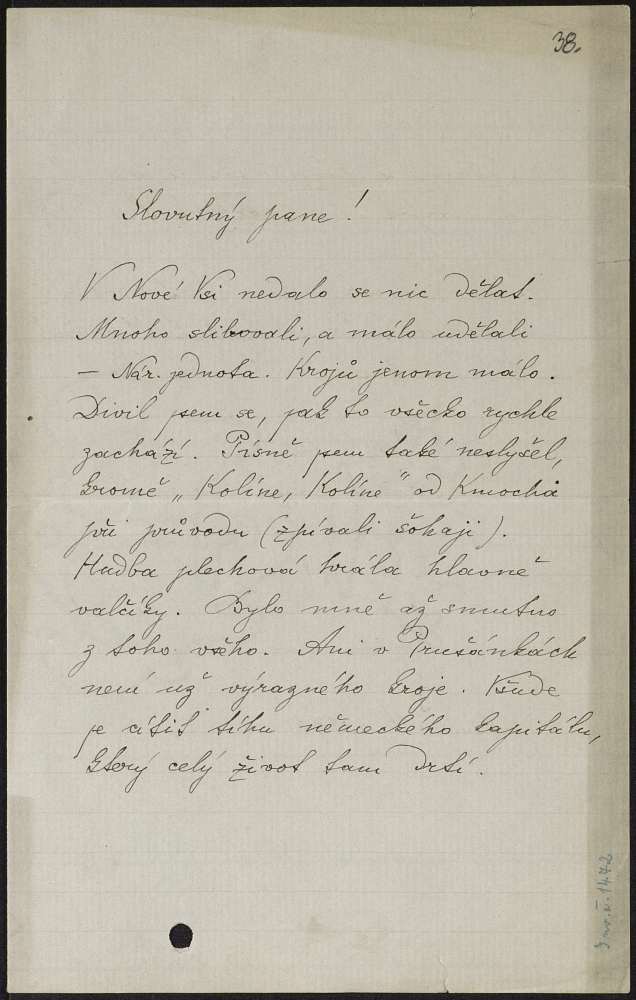 38.
Slovutný pane!
V Nové Vsi nedalo se nic dělat.
Mnoho slibovali, a málo udělali
— Nár. jednota. Krojů jenom málo.
Divil jsem se, jak to všecko rychle
zachází. Písně jsem také neslyšel,
kromě „Kolíne, Kolíne" od Kmocha
při průvodu (zpívali šohaji).
Hudba plechová hrála hlavně
valčíky. Bylo mně až smutno
z toho všeho. Ani v Prušánkách
není už výrazného kroje. Všude
je cítit tíhu německého kapitálu,
který celý život tam drtí.